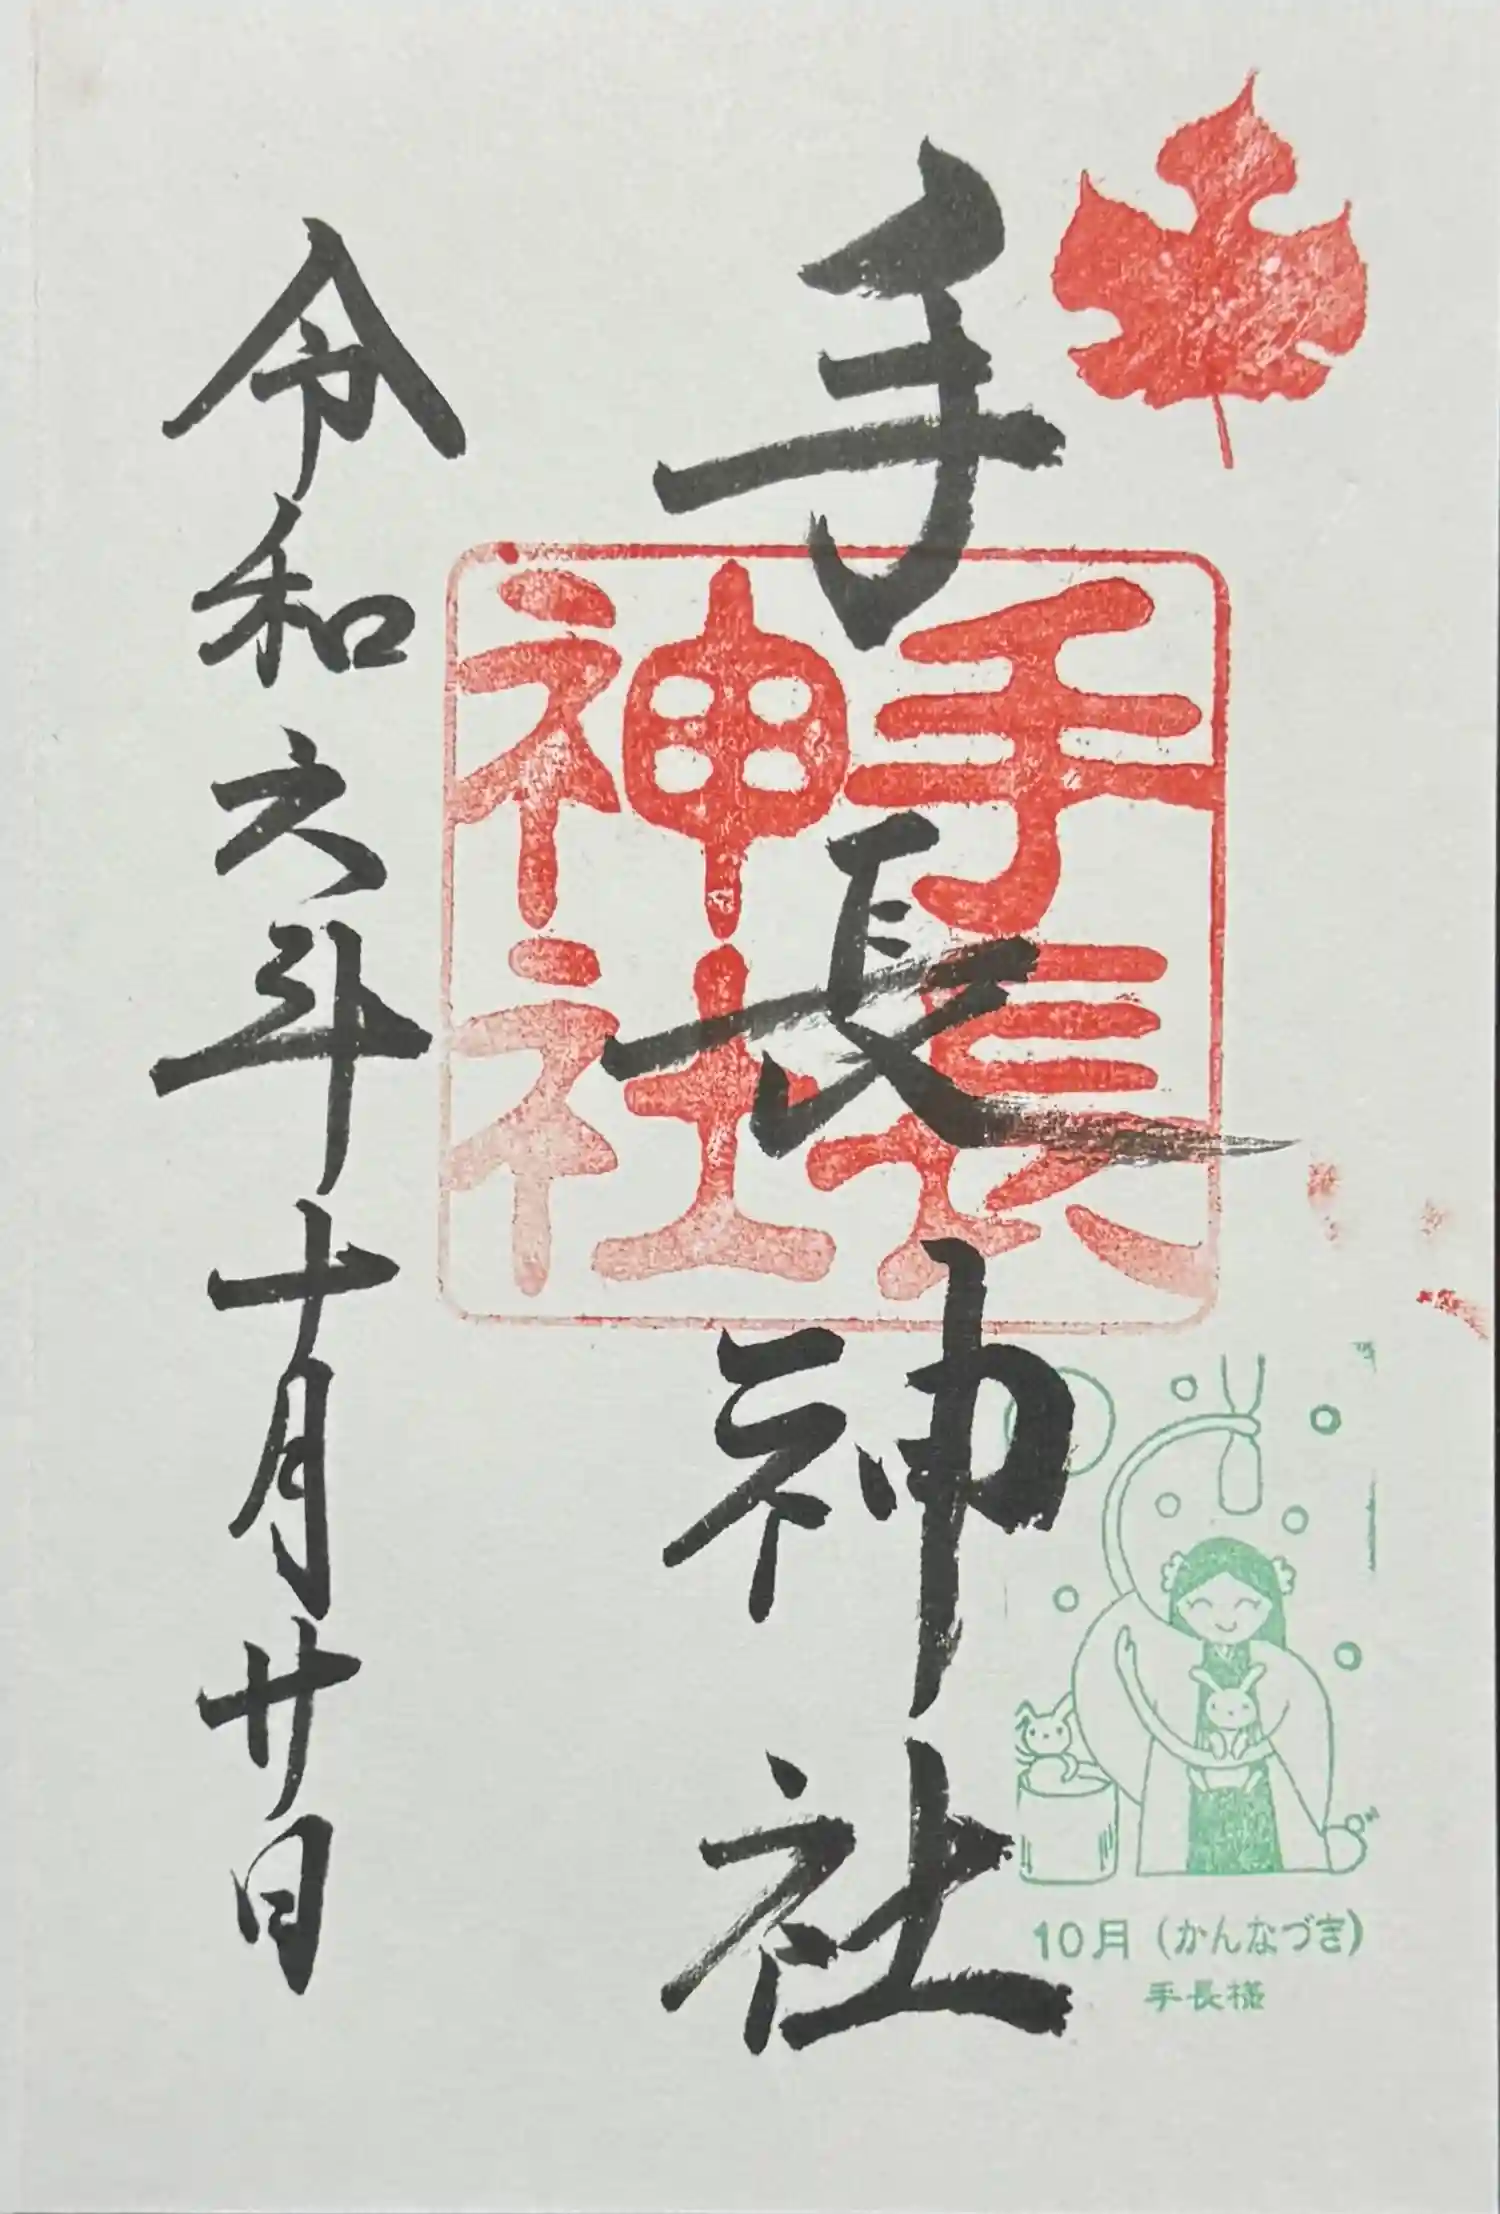 手長神社
手長
神社
令和六年十月廿日
10月（かんなづき）
手長様